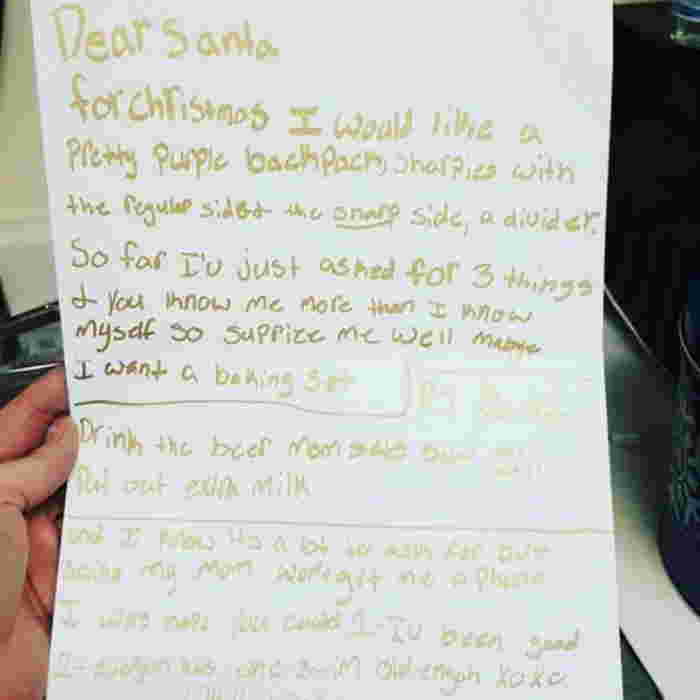 Dear Santa
for christmas I would like a
Pretty Purple backpack, sharpies with
the regular side & the sharp side, a divider.
So far I'v just asked for 3 things
& you know me more than I know
myself so supprize me well maybe
I want a baking set
Drink the beer mom said
Put out extra milk
and I know its a lot to ask for but
my mom wont get me a phone
I was you could 1- Iv been good
2- one & im old xoxo